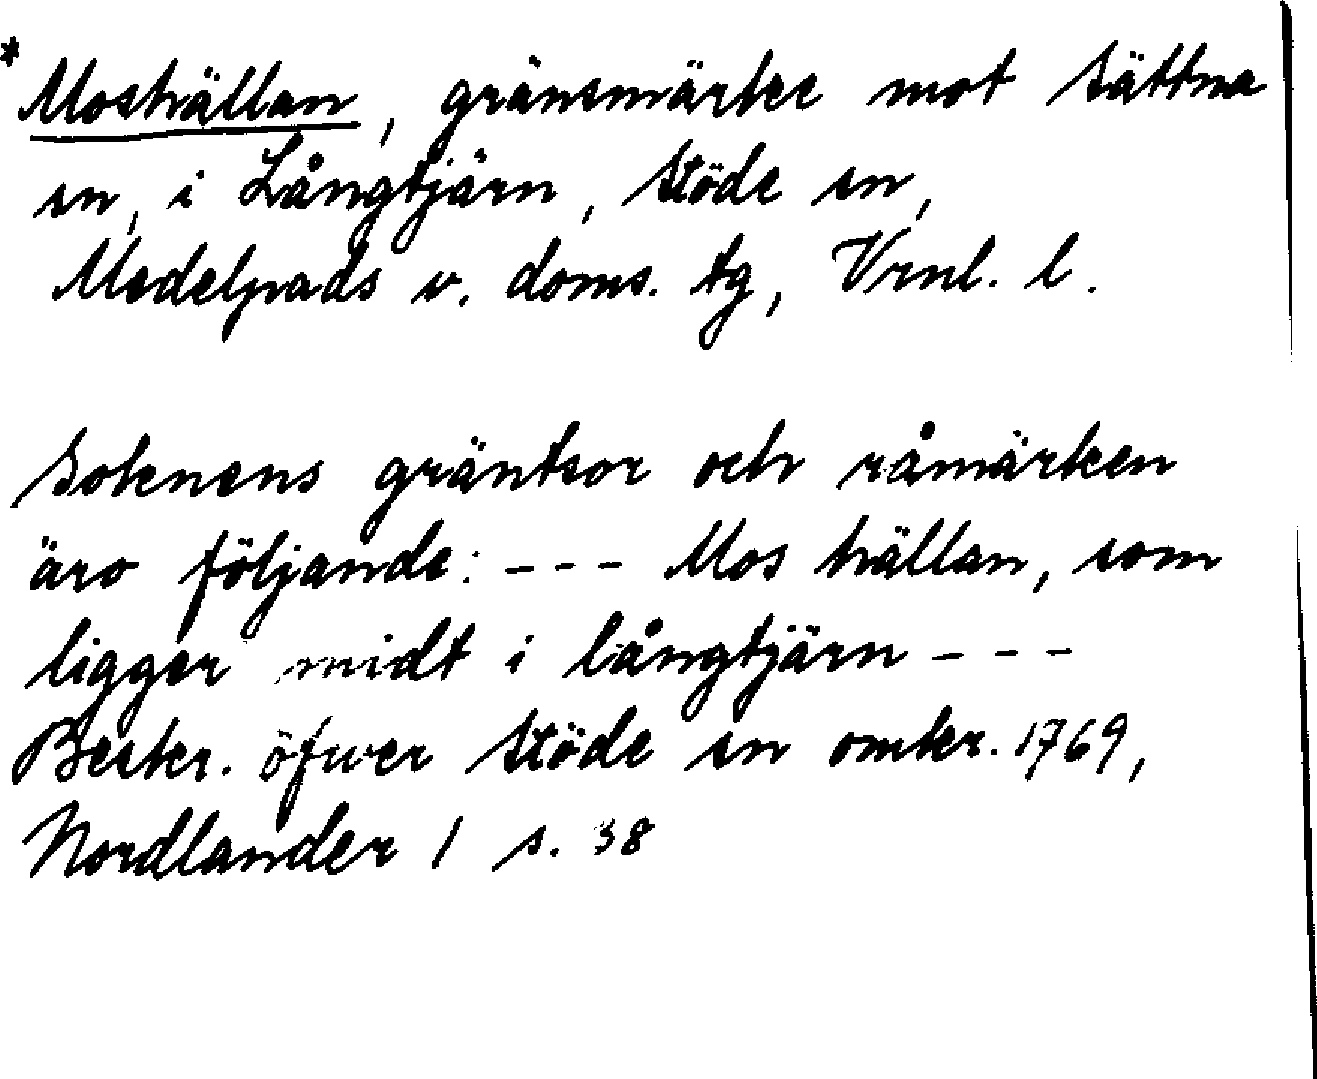 *Moshällan, gränsmärke mot Sättna
sn, i Långtjärn, Stöde sn,
Medelpads v. doms. tg, Vrnl. l.
Soknens gräntsor och råmärken
äro följande: --- Mos hällan, som
ligger midt i långtjärn ---
Beskr. öfwer Stöde sn omkr. 1769,
Nordlander 1 s. 38